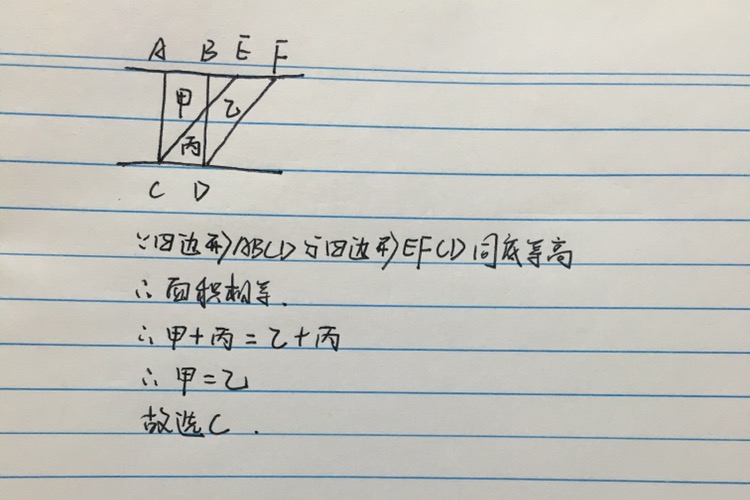 A B E F
甲 乙
丙
C D
∵四边形ABCD与四边形EFCD同底等高
∴面积相等.
∴甲+丙=乙+丙
∴甲=乙
故选C.